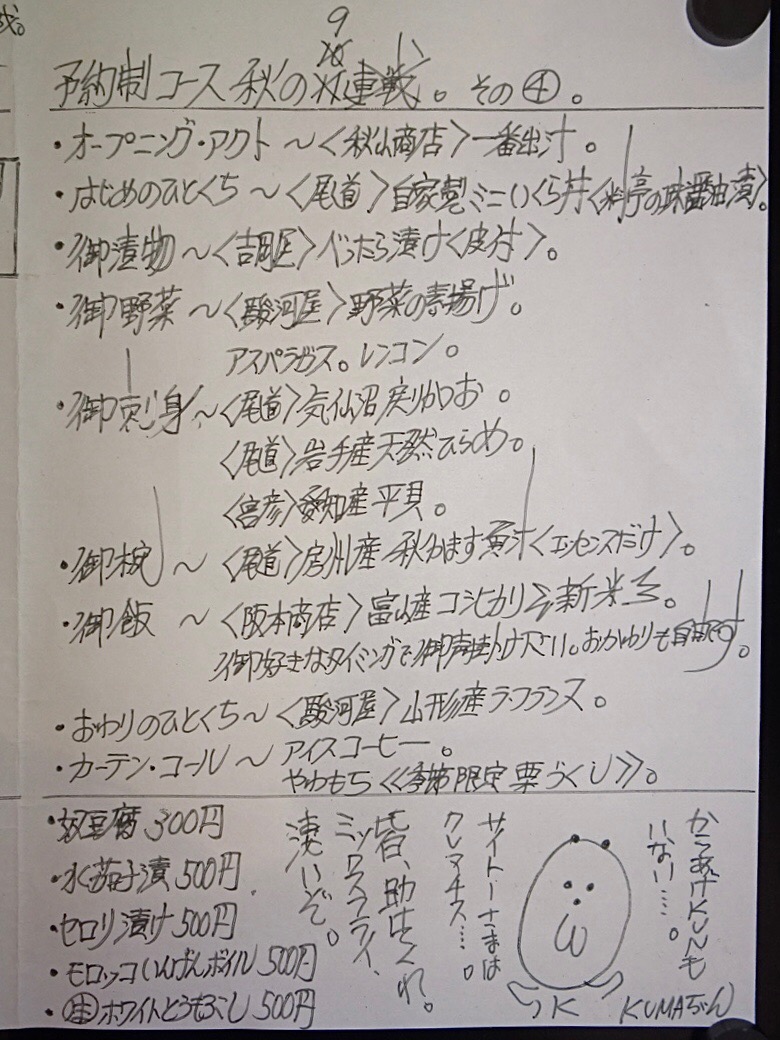 9
予約制コース秋の連戦。その④。
・オープニング・アクト〜〈秋山商店〉一番出汁。
・はじめのひとくち〜〈尾道〉自家製ミニいくら丼〈料亭の味醤油漬〉。
・御漬物〜〈吉岡屋〉べったら漬け〈皮付〉。
・御野菜〜〈駿河屋〉野菜の素揚げ。
アスパラガス。レンコン。
・御刺身〜〈尾道〉気仙沼戻りかつお。
〈尾道〉岩手産天然ひらめ。
〈宮彦〉愛知産平貝。
・御椀〜〈尾道〉房州産秋かます魚汁〈エッセンスだけ〉。
・御飯〜〈阪本商店〉富山産コシヒカリ≦新米≧。
御好きなタイミングで御声掛け下さい。おかわりも自由です。
・おわりのひとくち〜〈駿河屋〉山形産ラ・フランス。
・カーテン・コール〜アイスコーヒー。
やわもち《季節限定栗づくし》。
・奴豆腐300円
・水茄子漬500円
・セロリ漬け500円
・モロッコいんげんボイル500円
・㊤ホワイトとうもろこし500円
からあげKUNも
いない……。
サイトーさまは
クレマチス……。
皆、助けてくれ。
ミックスフライ、
凄いぞ。
K
KUMAちゃん